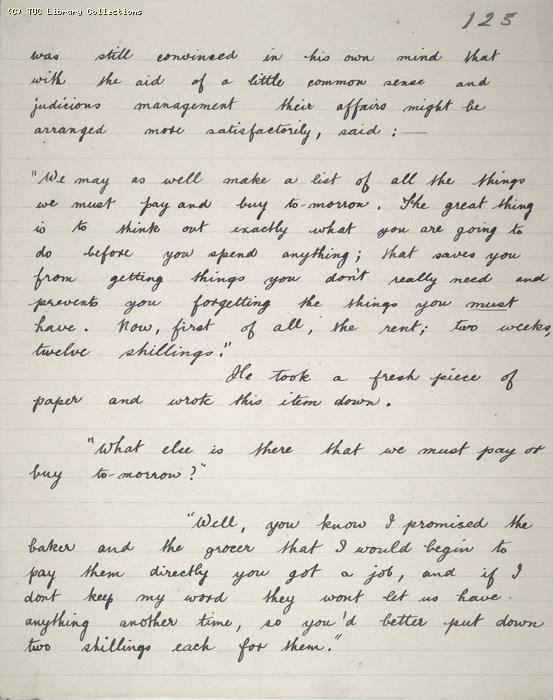 (C) TUC Library Collections
125
was still convinced in his own mind that
with the aid of a little common sense and
judicious management their affairs might be
arranged more satisfactorily, said : —
"We may as well make a list of all the things
we must pay and buy to-morrow. The great thing
is to think out exactly what you are going to
do before you spend anything; that saves you
from getting things you don't really need and
prevents you forgetting the things you must
have. Now, first of all, the rent; two weeks,
twelve shillings."
He took a fresh piece of
paper and wrote this item down.
"What else is there that we must pay or
buy to-morrow?"
"Well, you know I promised the
baker and the grocer that I would begin to
pay them directly you got a job, and if I
dont keep my word they wont let us have
anything another time, so you'd better put down
two shillings each for them."